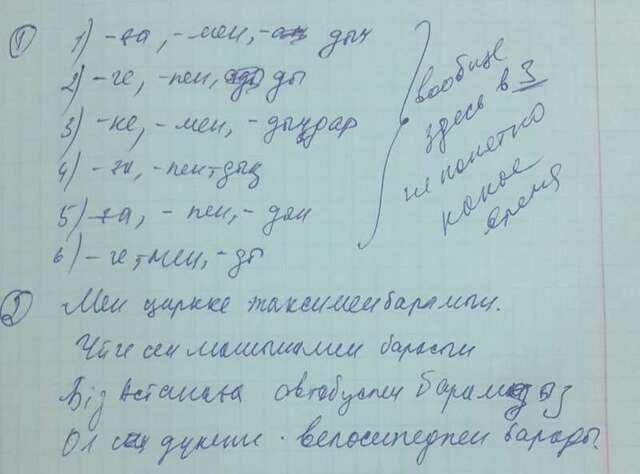 ① 1) -ға, -мен, - дың
2) -ге, -пен, ды
3) -ке, -мен, -дыңдар
4) -га, -пен, -дың
5) -ға, -пен, -дан
6) -ге, -мен, -ды
вообще
здесь в 3
не понятно
какое
время
② Мен циркке таксимен барамын.
Үйге сен машынамен барасың
Біз Астанаға автобуспен барамыз
Ол дүкенге велосипедпен барады.